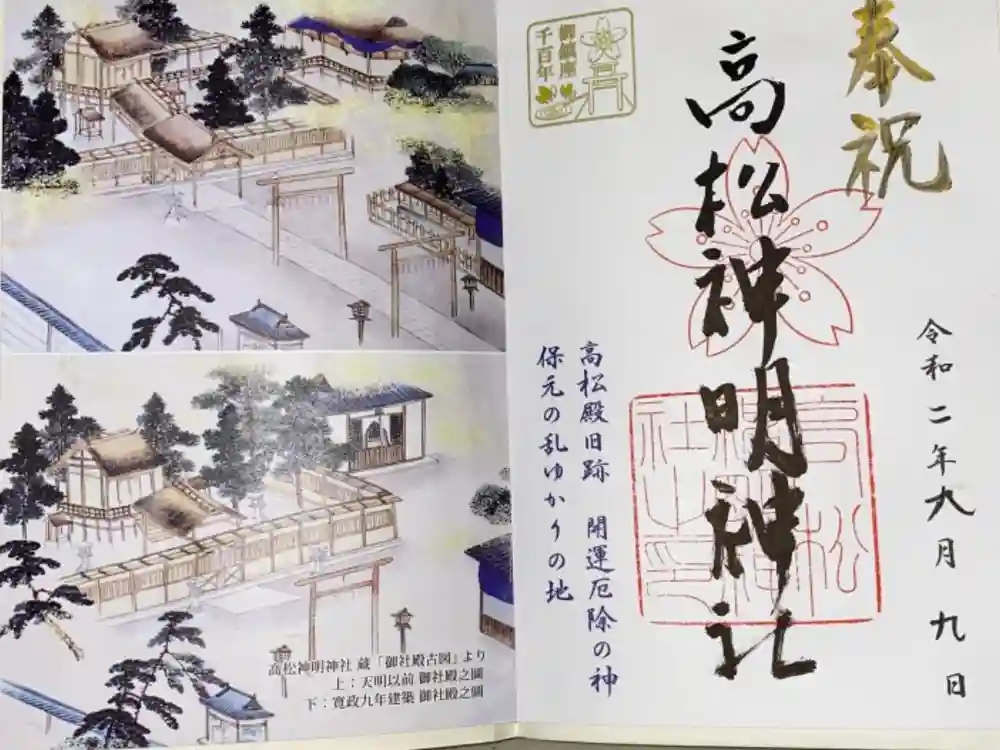 奉祝
高松神明神社
御鎮座
千百年
令和二年九月九日
高松殿旧跡 開運厄除の神
保元の乱ゆかりの地
高松神明神社 蔵「御社殿古図」より
上：天明以前 御社殿之圖
下：寛政九年建築 御社殿之圖